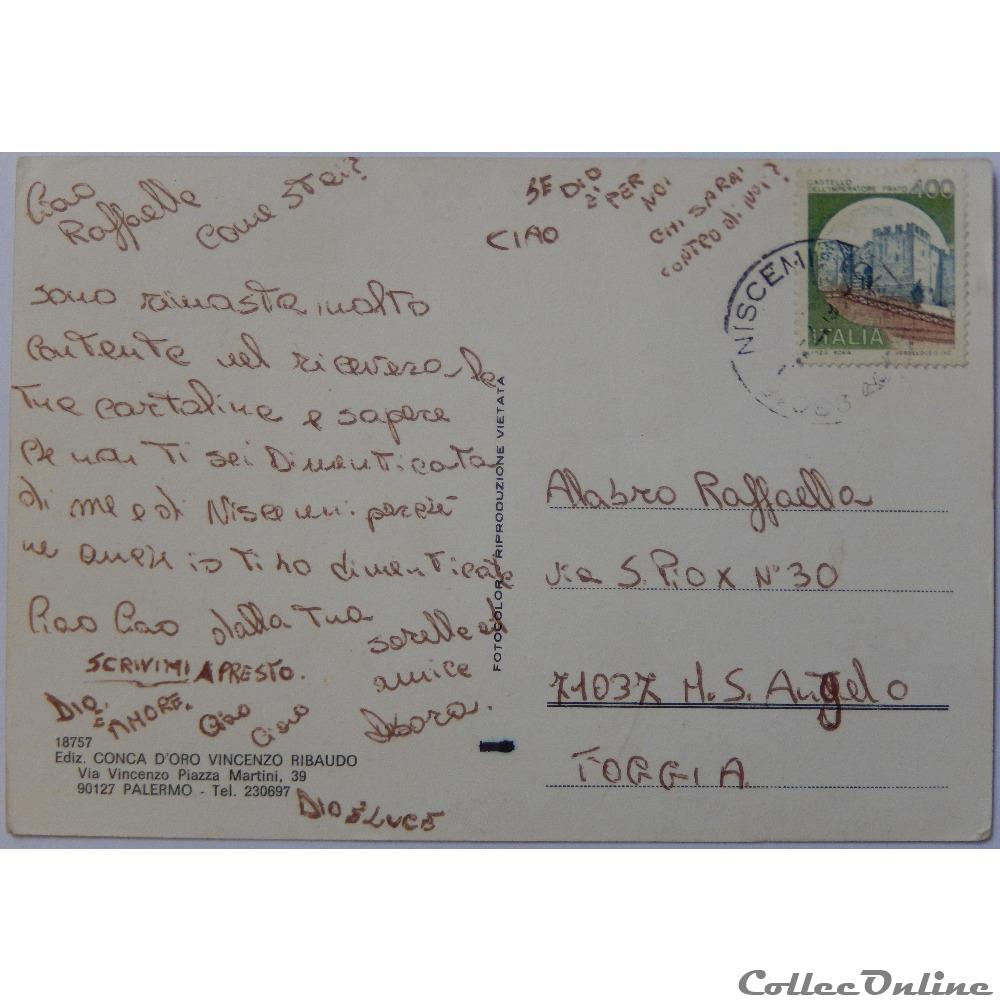 Ciao
Raffaella
come stai?
sono rimasta molto
contenta nel ricevere la
tua cartolina e sapere
che non ti sei dimenticata
di me e di Niscemi. perchè
ne anch io ti ho dimenticata
Ciao Ciao dalla tua
sorella ed
amica
SCRIVIMI A PRESTO.
DIO È AMORE.
Ciao
Ciao
DIO È LUCE
CIAO
SE DIO
È PER
NOI
CHI SARA'
CONTRO di NOI?
18757
Ediz. CONCA D'ORO VINCENZO RIBAUDO
Via Vincenzo Piazza Martini, 39
90127 PALERMO - Tel. 230697
FOTOCOLOR RIPRODUZIONE VIETATA
CASTELLO
DELL'IMPERATORE PRATO 400
ITALIA
NISCEMI
Alabro Raffaella
via S. Pio X N° 30
71037 M. S. Angelo
FOGGIA
CollecOnline